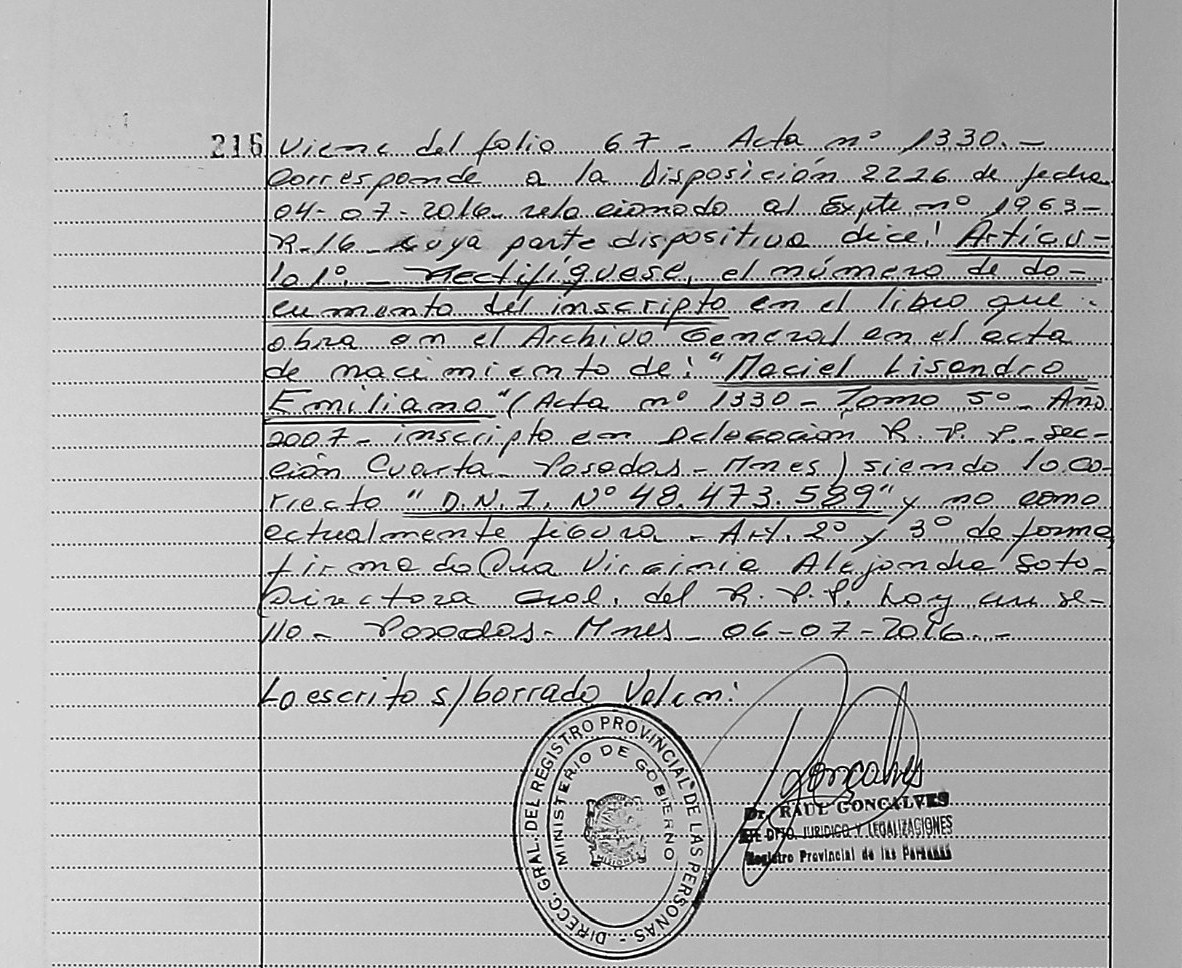 216 Viene del folio 67 - Acta nº 1330. -
Corresponde a la Disposición 2226 de fecha
04-07-2016 relacionado al Expte nº 1963-
R-16 cuya parte dispositiva dice: Artícu-
lo 1º. - Rectifíquese, el número de do-
cumento del inscripto en el libro que
obra en el Archivo General en el acta
de nacimiento de: "Maciel Lisandro
Emiliano" (Acta nº 1330 - Tomo 5º - Año
2007 - inscripto en Delegación R. P. P. sec-
ción Cuarta - Posadas - Mnes) siendo lo co-
rrecto "D.N.I. Nº 48.473.589" y no como
actualmente figura - Art. 2º y 3º de forma,
firmado Virginia Alejandra Soto -
Directora Gral. del R. P. P. hay un se-
llo - Posadas - Mnes - 06-07-2016. -
Lo escrito s/borrado Valen:
DIRECC. GRAL. DEL REGISTRO PROVINCIAL DE LAS PERSONAS.-
MINISTERIO DE GOBIERNO
MISIONES
Goncalves
Dr. RAUL GONCALVES
DPTO. JURIDICO Y LEGALIZACIONES
Registro Provincial de las Personas